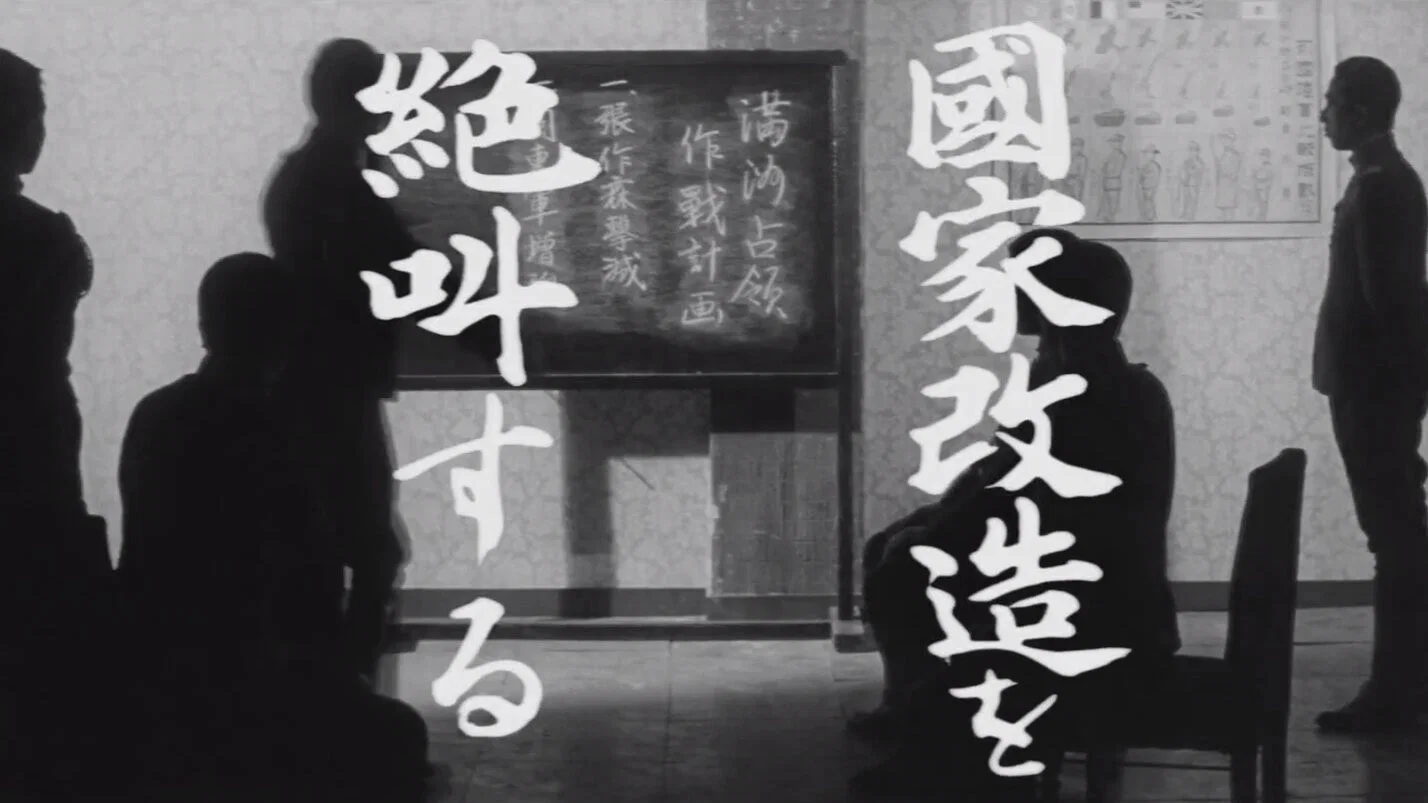 國家改造を
絶叫する
満洲占領
作戰計画
一、張作霖撃滅